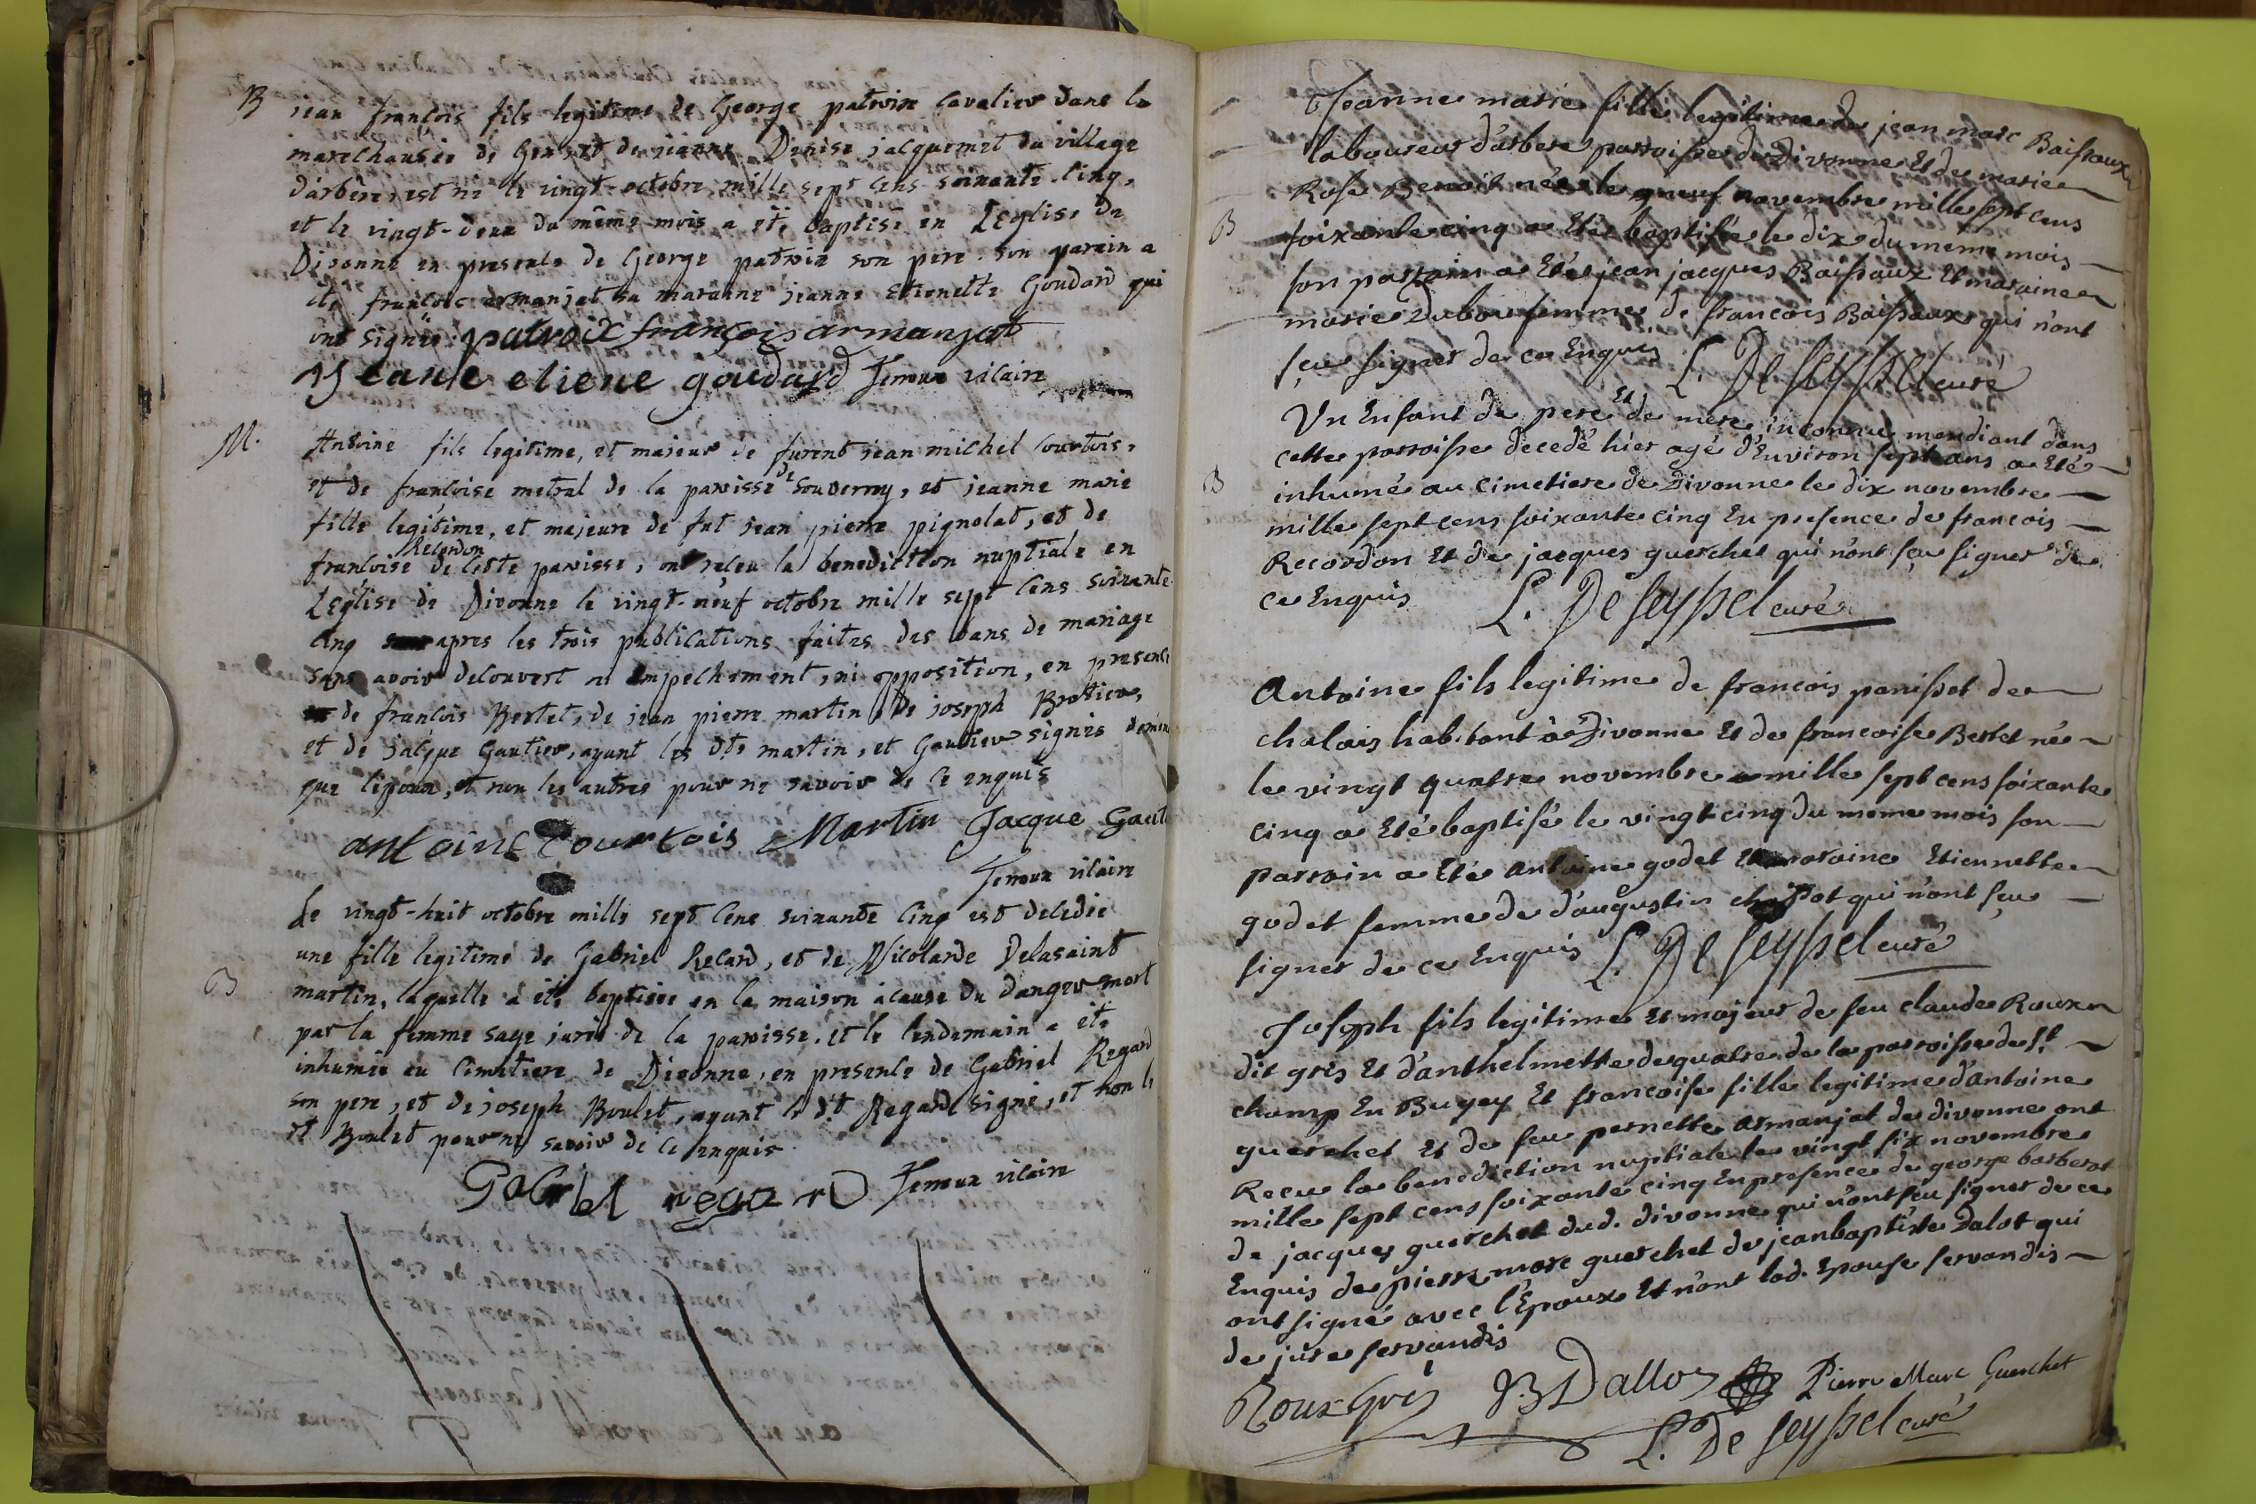 B
jean françois fils legitime de George patroix Cavalier dans la
marechaussée de Gex, et de jeanne Denise jacquemet du village
d'arbére, est né le vingt-octobre mille sept cens soixante-cinq,
et le vingt-deux du même mois a été baptisé en L'eglise de
Divonne en presence de George patroix son pere. Son parain a
été françois armanjat sa maraine jeanne Etienette Goudard qui
ont signés patroix françois armanjat
Jeane etiene goudard Jemoux vilaire
M.
Antoine fils legitime, et majeur de furent jean michel Courtois,
et de françoise metral de la paroisse de Souverny, et jeanne marie
fille legitime, et majeure de fut jean pierre pignolat, et de
françoise Recordon de cette paroisse, ont reçeu la benediction nuptiale en
L'église de Divonne le vingt-neuf octobre mille sept cens soixante
cinq apres les trois publications faites des bans de mariage
sans avoir decouvert ni empechement, ni opposition, en presence
de françois Bertet, de jean pierre martin, de joseph Brotier,
et de jacque Gautier, ayant les dts martin, et Gautier signés de même
que l'epoux, et non les autres pour ne savoir de ce enquis
antoine Courtois Martin Jacque Gauti
Jemoux vilaire
Le vingt-huit octobre mille sept cens soixante cinq est decedée
une fille legitime de Gabriel Regard, et de Nicolarde Delasaint
B
martin, laquelle à été baptisée en la maison àcause du danger mort
par la femme sage jurée de la paroisse. et le lendemain a été
inhumée au cimetiere de Divonne, en presence de Gabriel Regard
son pere, et de joseph Boulet, ayant le d't Regard signé, et non le
dt Boulet pour ne savoir de ce enquis
Gabriel regard Jemoux vilaire
Jeanne marie fille legitime de jean marc Baissaux
laboureur d'arbere parroisse de Divonne Et de marie
Rose Benoit née le neuf novembre mille sept cens
B
soixante cinq a Eté baptisée le dix du meme mois
son parrain a Eté jean jacques Baissaux Et maraine
marie Dubou femme de francois Baissaux qui n'ont
sçu signer de ce Enquis L. De Seyssel curé
Un Enfant de pere Et de mere inconnu mendiant dans
cette parroisse decedé hier agé d'Environ sept ans a Eté
B
inhumé au cimetiere de Divonne le dix novembre
mille sept cens soixante cinq En presence de francois
Recordon Et de jacques guerchet qui n'ont sçu signer de
ce Enquis L. De Seyssel curé
Antoine fils legitime de francois panisset de
chalais habitant à Divonne Et de francoise Bertet né
le vingt quatre novembre mille sept cens soixante
cinq a Eté baptisé le vingt cinq du meme mois son
parrain a Eté Antoine godet Et maraine Etiennette
godet femme de d'augustin chapot qui n'ont sçu
signer de ce Enquis L. De Seyssel curé
Joseph fils legitime Et majeur de feu claude Roux
dit gris Et d'anthelmette dequatre de la parroisse de St.
champ En Bugey Et francoise fille legitime d'antoine
guerchet Et de feu pernette armanjat de divonne ont
Recu la benediction nuptiale le vingt six novembre
mille sept cens soixante cinq En presence de george barberat
de jacques guerchet dud. divonne qui n'ont sçu signer de ce
Enquis de pierre marc guerchet de jeanbaptiste Dalot qui
ont signé avec l'Epoux Et n'ont lad. Epouse servandis
de jure servandis
Roux Gris JB Dalloz Pierre Marc Guerchet
L. De Seyssel curé